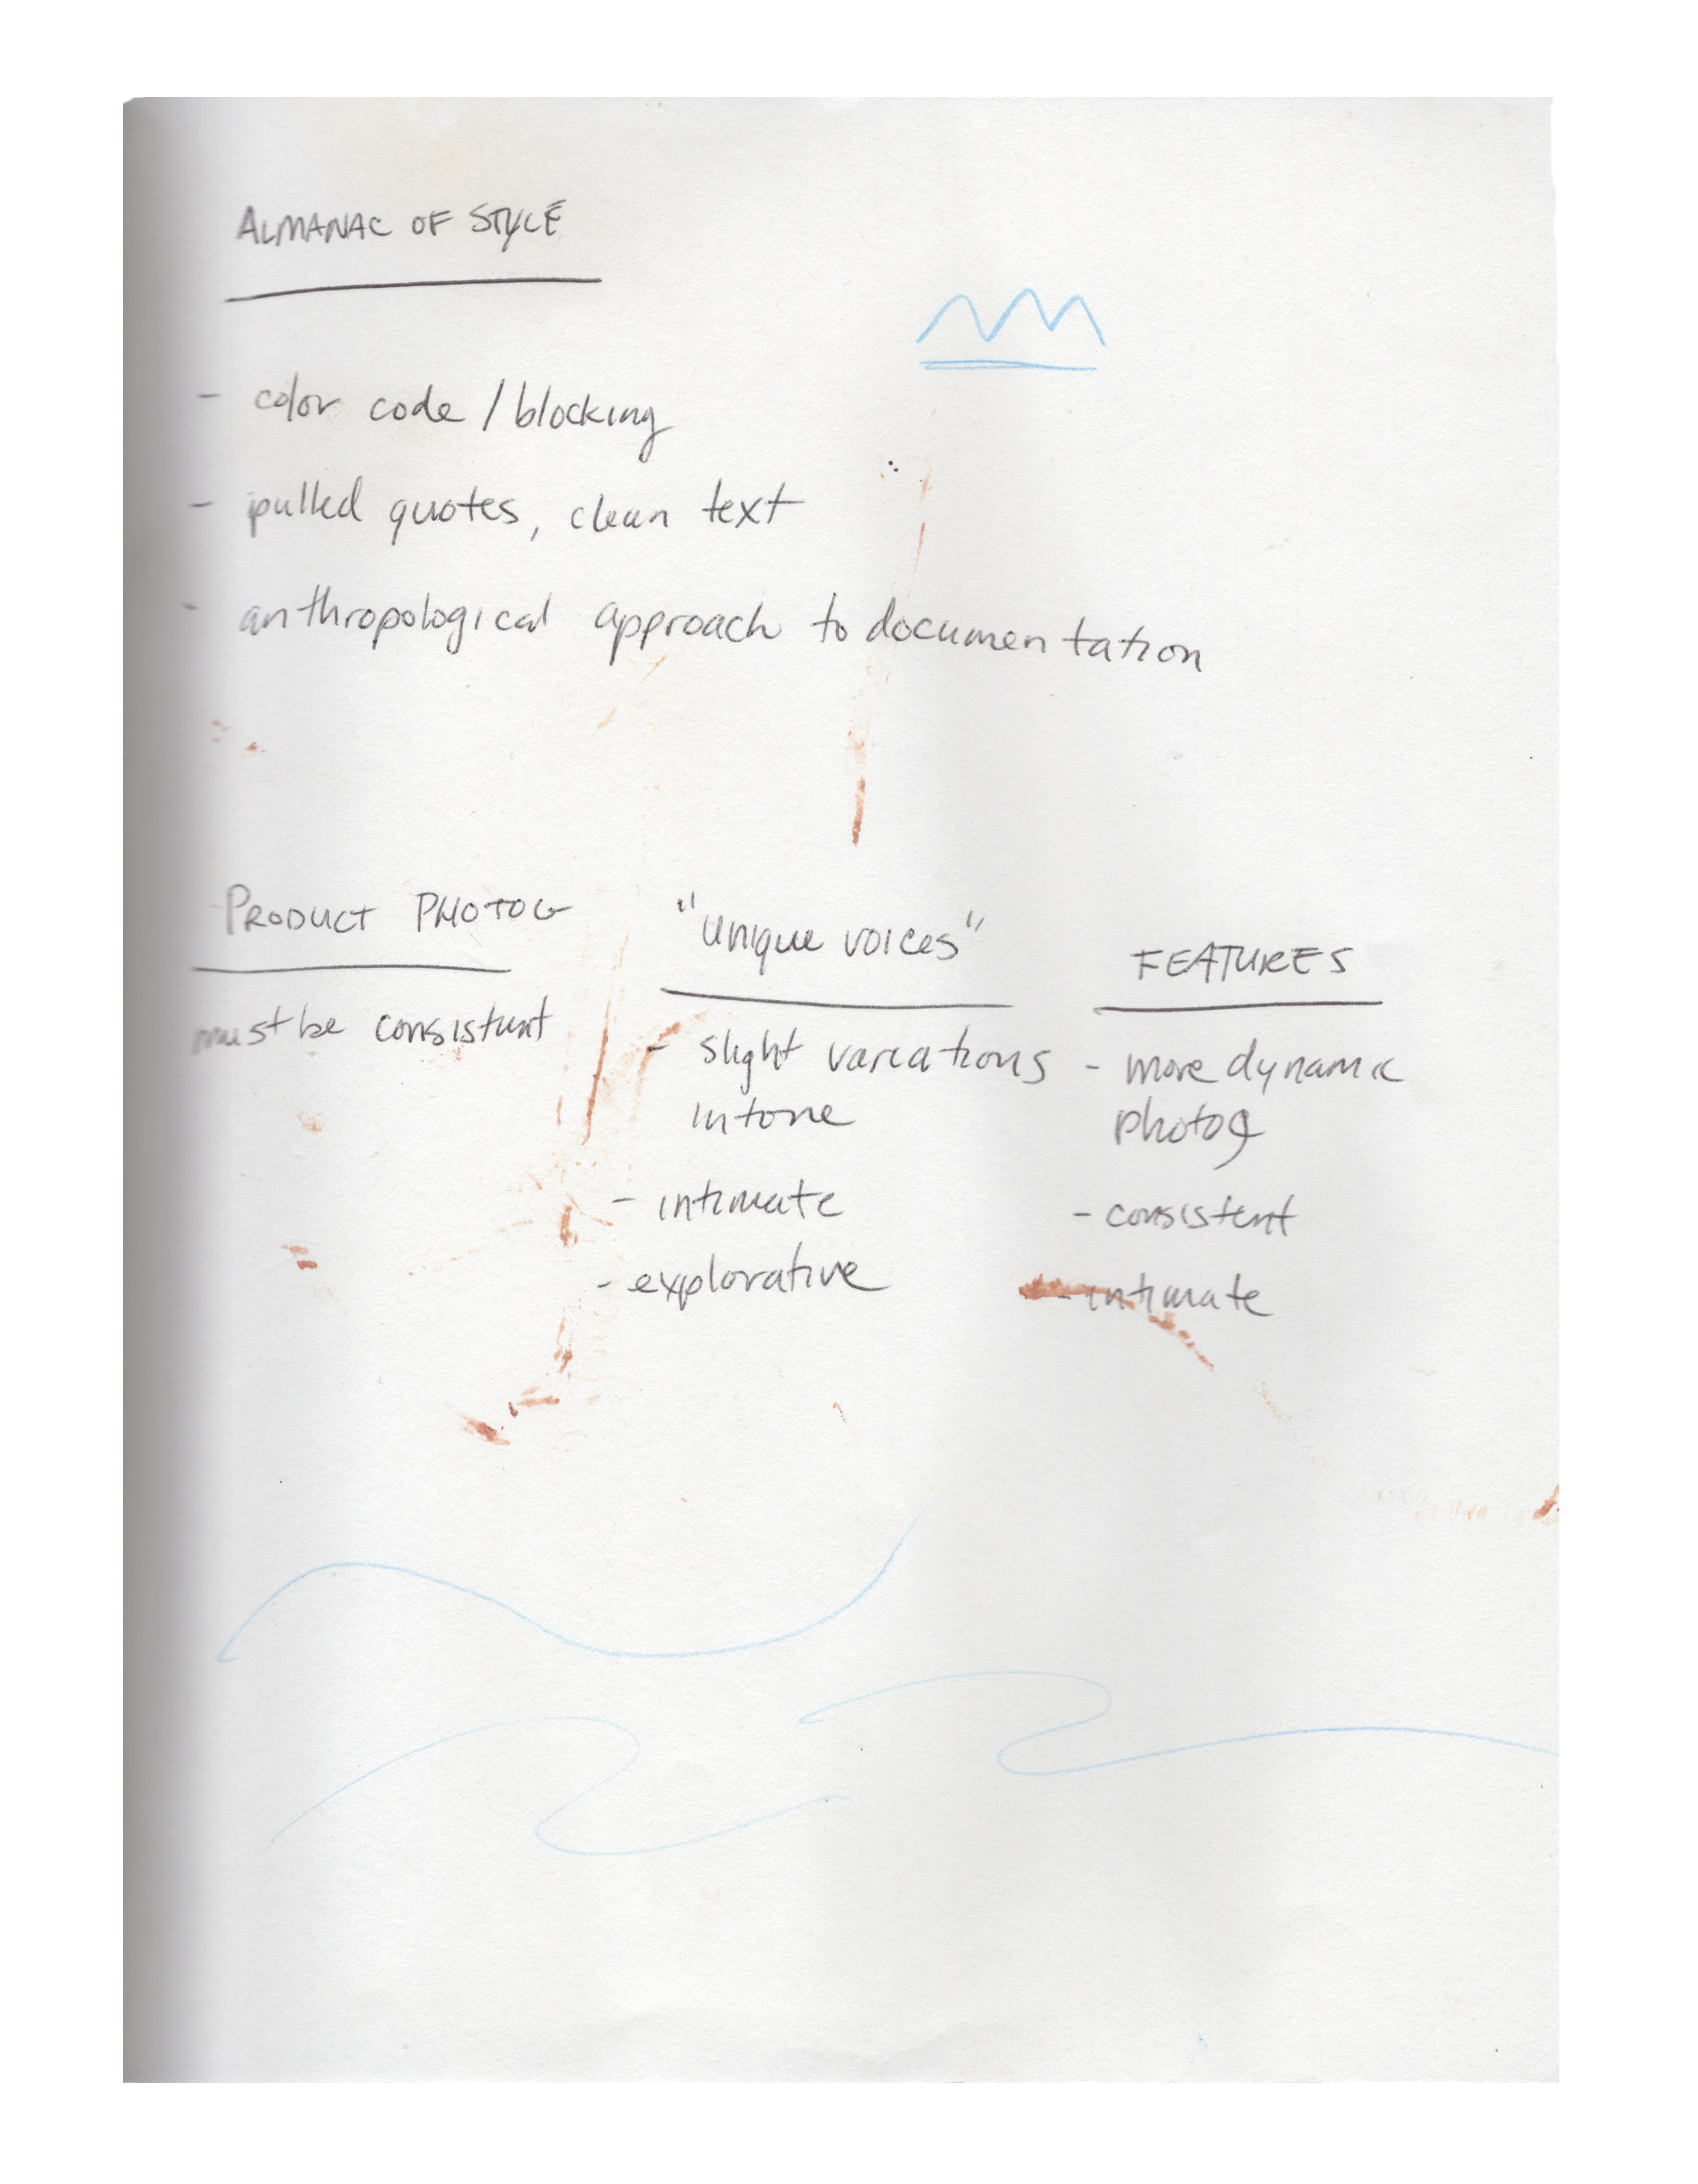 ALMANAC OF STYLE
- color code / blocking
- pulled quotes, clean text
- anthropological approach to documentation
PRODUCT PHOTOG
must be consistent
"unique voices"
- slight variations
in tone
- intimate
- explorative
FEATURES
- more dynamic
photog
- consistent
- intimate